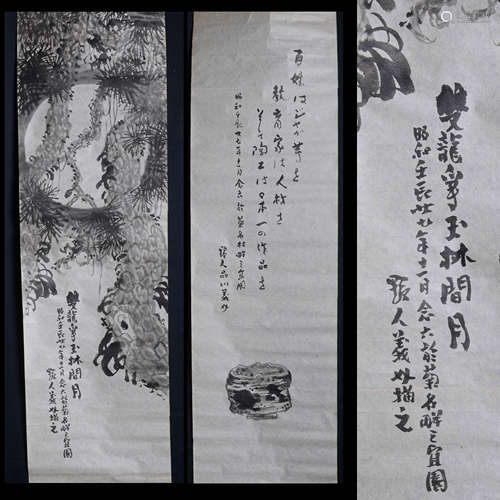 雙龍争玉林間月
昭和壬辰廿七年十一月念六於菊名畔之宜園
人義
描之
百姓はジャが芋を
教育家は人材を
そして陶工は日本一の作品を
昭和壬辰廿七年十一月念六於菊名村畔之宜園
人品川義
雙龍争玉林間月
昭和壬辰廿七年十一月念六於菊名畔之宜園
人義
描之